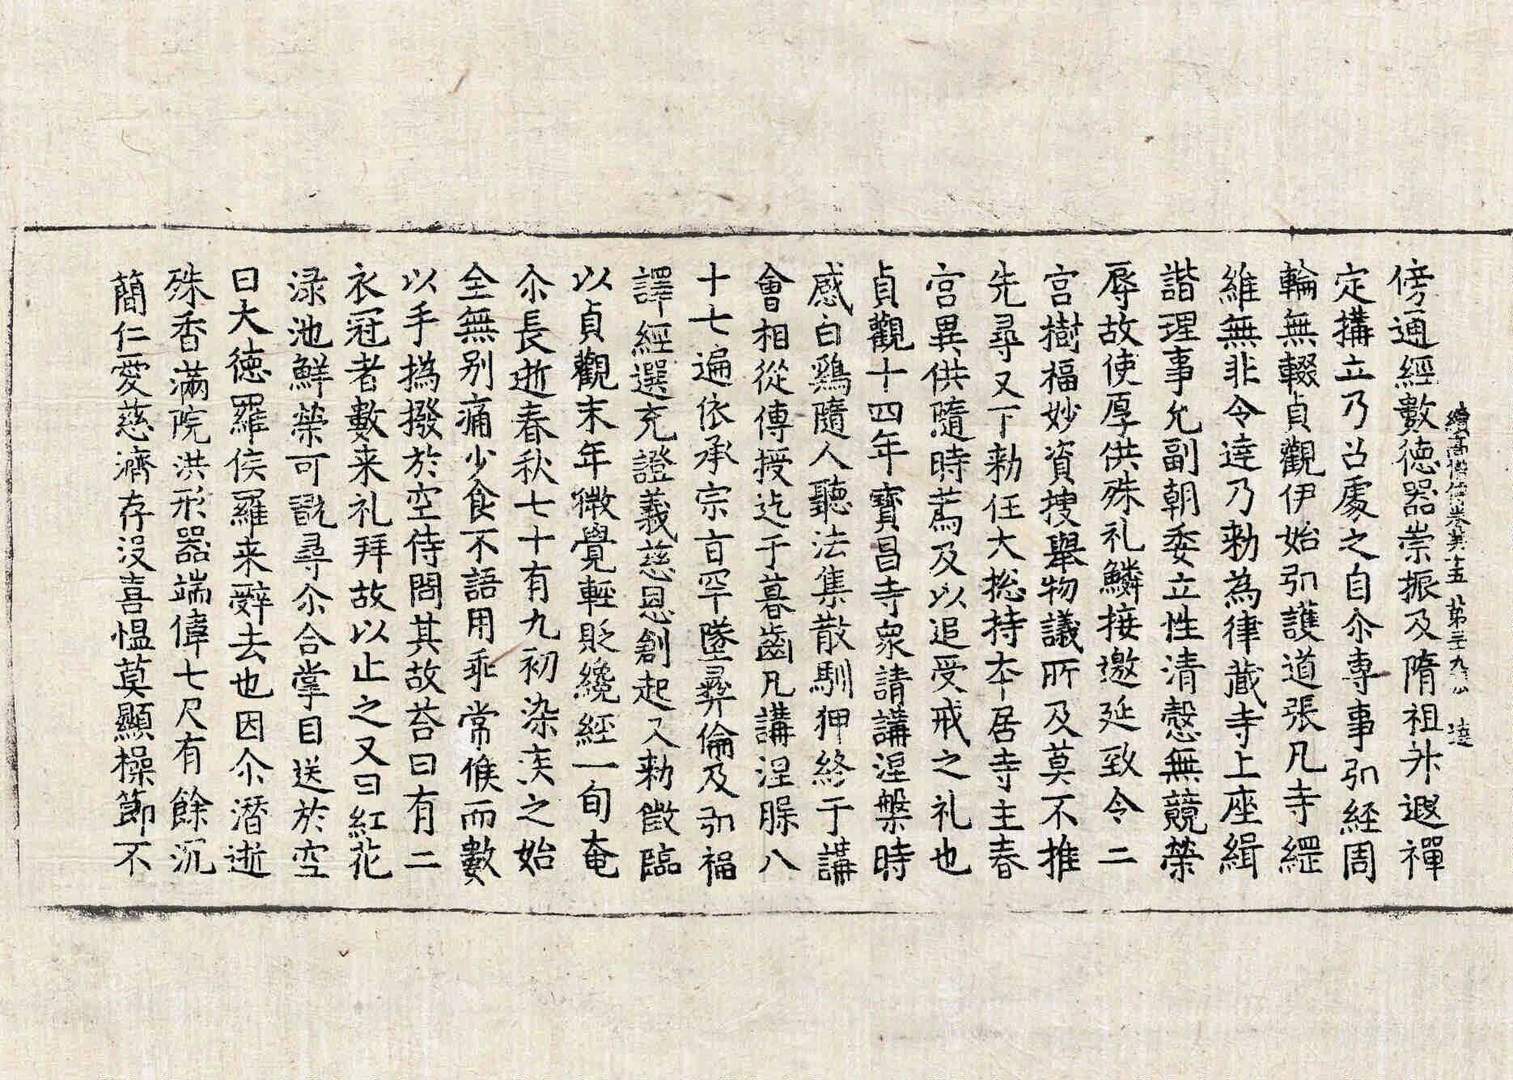 傍通經數德器崇振及隋祖升遐禪
續高僧傳卷第十五 第三十九 達
定搆立乃召處之自尒專事弘經周
輪無輟貞觀伊始弘護道張凡寺綱
維無非令達乃勅為律藏寺上座緝
諧理事允副朝委立性清愨無競榮
辱故使厚供殊礼鱗接邀延致令二
宮樹福妙資搜舉物議所及莫不推
先尋又下勅任大揔持夲居寺主春
宮異供隨時薦及以追受戒之礼也
貞觀十四年寶昌寺衆請講涅槃時
感白鷄隨人聽法集散馴狎終于講
會相從傳授迄于暮齒凡講涅槃八
十七遍依承宗旨罕墜彛倫及弘福
譯經選充證義慈恩創起又勅徵臨
以貞觀末年微覺輕貶纔經一旬奄
尒長逝春秋七十有九初染疾之始
全無别痛少食不語用乖常候而數
以手撝撥於空侍問其故荅曰有二
衣冠者數来礼拜故以止之又曰紅花
渌池鮮榮可翫尋尒合掌目送於空
曰大德羅侯羅来辭去也因尒潛逝
殊香滿院洪形器端偉七尺有餘沉
簡仁愛慈濟存没喜愠莫顯操節不